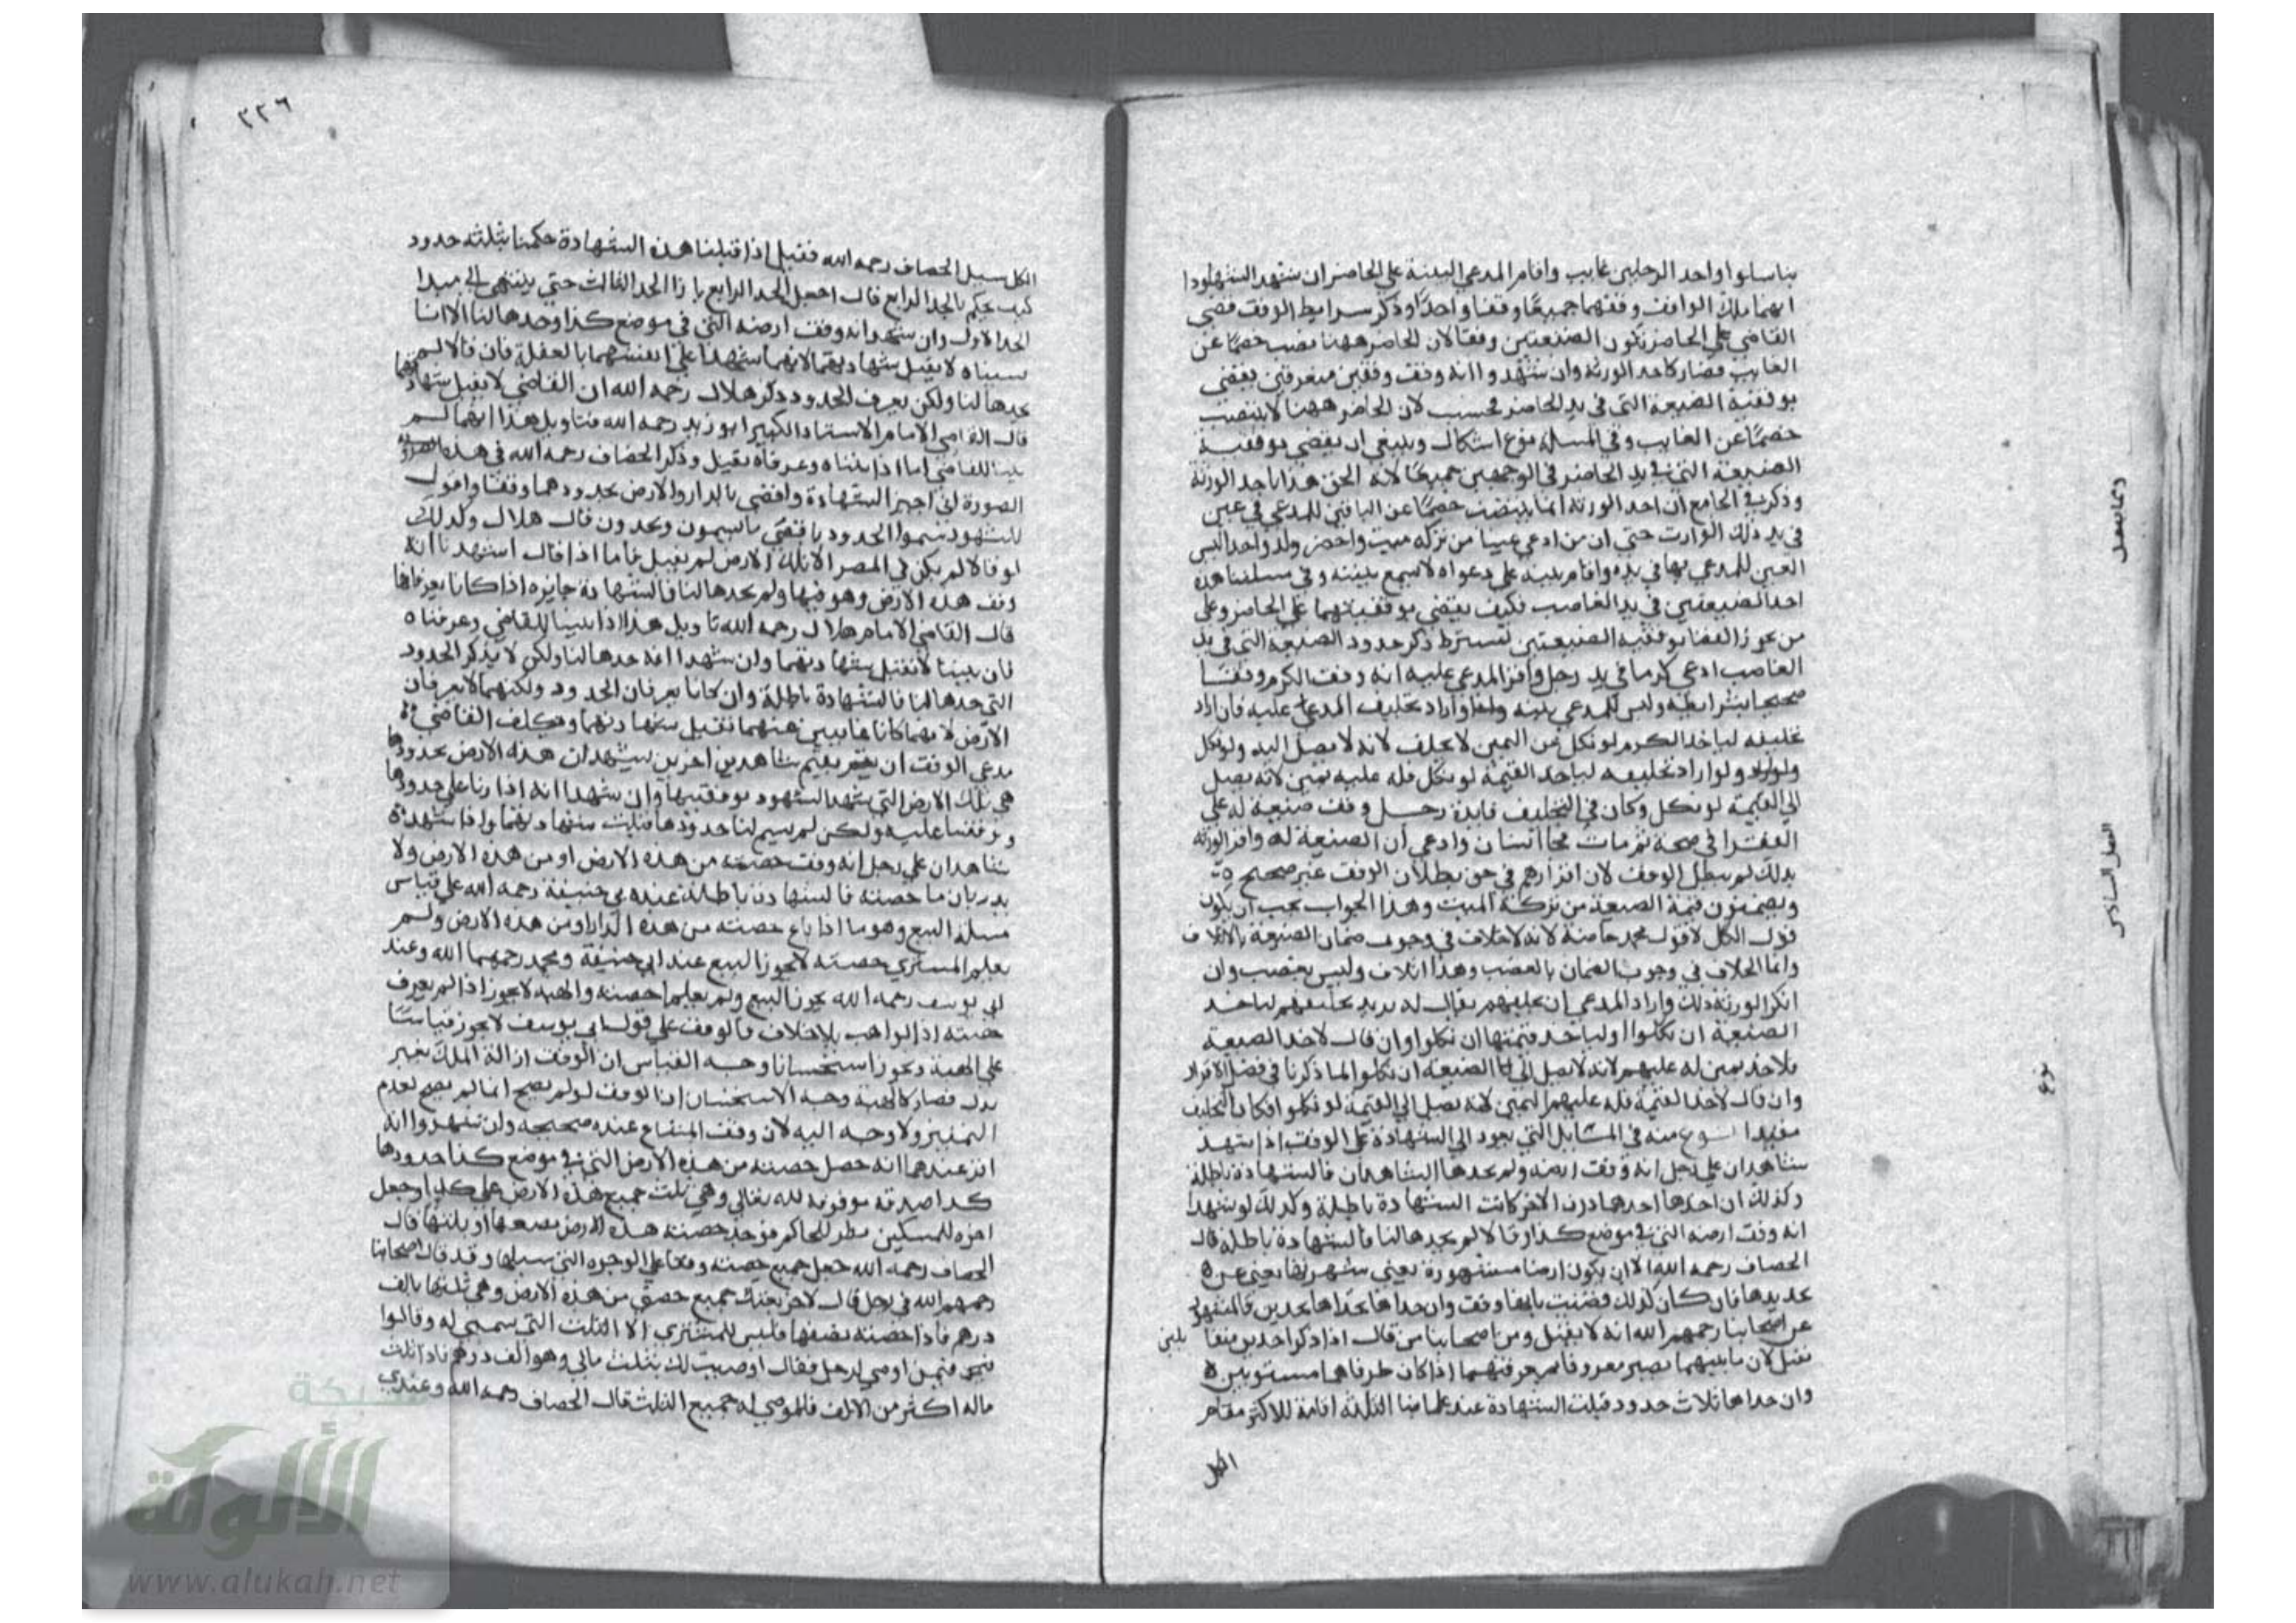 بتناسلوا واحد الرجلين غايب واقام المدعي البينة علي الحاضر ان شهد الشهود
انهما ملك الواقف وقفهما جميعا وقفا واحدا وذكر شرايط الوقف قضي
القاضي علي الحاضر بكون الضيعتين وقفا لان الحاضر ههنا نصب خصما عن
الغايب فصار كاحد الورثة وان شهدوا انه وقف وقفين متفرقين يقضي
بوقفية الضيعة التي في يد الحاضر فحسب لان الحاضر ههنا لا ينتصب
خصما عن الغايب وفي المسلة نوع اشكال وينبغي ان يقضي بوقفية
الضيعة التي في يد الحاضر في الوجهين جميعا لانه الحق هذا باحد الورثة
وذكر في الجامع ان احد الورثة انما ينتصب خصما عن الباقين للمدعي في عين
في يد ذلك الوارث حتي ان من ادعي عينا من تركة ميت واحضر ولدا واحدا ليس
العين المدعي بها في يده واقام بينة علي دعواه لا تسمع بينته وفي مسلتنا هذه
احد الضيعتين في يد الغاصب فكيف يقضي بوقفيتهما علي الحاضر وعلي
من يجوز القضا بوقفية الضيعتين تشترط ذكر حدود الضيعة التي في يد
الغاصب ادعي كرما في يد رجل واقر المدعي عليه انه وقف الكرم وقفا
صحيحا بشرايطه وليس للمدعي بينة واراد تحليف المدعي عليه فان اراد
تحليفه لياخذ الكرم لو نكل عن اليمين لا يحلف لانه لا يصل اليه ولو نكل
ولو اراد تحليفه لياخذ القيمة لو نكل فله عليه يمين لانه يصل
الي القيمة لو نكل وكان في التحليف فايدة رجل وقف ضيعة له علي
الفقرا في صحة ثم مات فجا انسان وادعي ان الضيعة له واقر الورثة
بذلك لم يبطل الوقف لان اقرارهم في حق بطلان الوقف غير صحيح
ويضمنون قيمة الضيعة من تركة الميت وهذا الجواب يجب ان يكون
قول الكل لا قول محمد خاصة لانه لا خلاف في وجوب ضمان الضيعة بالاتلاف
وانما الخلاف في وجوب الضمان بالغصب وهذا اتلاف وليس بغصب وان
انكر الورثة ذلك واراد المدعي ان يحلفهم يقال له تريد تحليفهم لتاخذ
الضيعة ان نكلوا او لتاخذ قيمتها ان نكلوا وان قال لاخذ الضيعة
فلا يمين له عليهم لانه لا يصل الي الضيعة ان نكلوا لما ذكرنا في فصل الاقرار
وان قال لاخذ القيمة فله عليهم اليمين لانه يصل الي القيمة لو نكلوا فكان التحليف
مفيدا نوع منه في المسايل التي تعود الي الشهادة علي الوقف اذا شهد
شاهدان علي رجل انه وقف ارضه ولم يحدها الشاهدان فالشهادة باطلة
وكذلك ان حدها احدهما دون الاخر كانت الشهادة باطلة وكذلك لو شهدا
انه وقف ارضه التي في موضع كذا وقالا لم يحدها لنا فالشهادة باطلة قال
الخصاف رحمه الله الا ان يكون ارضا مشهورة يعني شهرتها يغني عن
تحديدها فان كان كذلك قضيت بانها وقف وان حداها بحدين فالمشهور
عن اصحابنا رحمهم الله انه لا يقبل ومن اصحابنا من قال اذا ذكرا حدين
تقبل لان ما بينهما يصير معروفا بمعرفتهما اذا كان طرفاهما مستويين
وان حداها بثلاث حدود قبلت الشهادة عند علماينا الثلثة اقامة للاكثر مقام
الكل
وبما يتصل
الفصل السادس
نوع
٢٢٦
الكل سيل الخصاف رحمه الله فقيل اذا قبلنا هذه الشهادة حكمنا بثلثة حدود
كيف يحكم بالحد الرابع قال اجعل الحد الرابع بازا الحد الثالث حتي ينتهي الي مبدا
الحد الاول وان شهدا انه وقف ارضه التي في موضع كذا وحدها لنا الا انا
نسيناه لا يقبل شهادتهما لانهما شهدا علي انفسهما بالغفلة فان قالا لم
يحدها لنا ولكن نعرف الحدود ذكر هلال رحمه الله ان القاضي لا يقبل شهادتهما
قال القاضي الامام الاستاد الكبير ابو زيد رحمه الله فتاويل هذا انهما لم
يبينا للقاضي اما اذا بيناه وعرفاه يقبل وذكر الخصاف رحمه الله في هذه
الصورة اني اجيز الشهادة واقضي بالدار والارض بحدودهما وقفا واقول
للشهود سموا الحدود فاقضي بما يسمون ويحدون قال هلال وكذلك
لو قالا لم يكن في المصر الا تلك الارض لم تقبل فاما اذا قال اشهدنا انه
وقف هذه الارض وهو فيها ولم يحدها لنا فالشهادة جايزة اذا كانا يعرفانها
قال القاضي الامام هلال رحمه الله تاويل هذا اذا بينا للقاضي وعرفناه
فان بينا لا تقبل شهادتهما وان شهدا انه حدها لنا ولكن لا نذكر الحدود
التي حدها لنا فالشهادة باطلة وان كانا يعرفان الحدود ولكنهما لا يعرفان
الارض لانهما كانا غايبين عنها تقبل شهادتهما ويكلف القاضي
مدعي الوقف ان يقيم شاهدين اخرين يشهدان هذه الارض بحدودها
هي تلك الارض التي شهد الشهود بوقفيتها وان شهدا انه ادارنا علي حدودها
ووقفنا عليه ولكن لم يسم لنا حدودها قبلت شهادتهما واذا شهد
شاهدان علي رجل انه وقف حصته من هذه الارض او من هذه الارض ولا
يدريان ما حصته فالشهادة باطلة عند ابي حنيفة رحمه الله علي قياس
مسلة البيع وهو ما اذا باع حصته من هذه الدار او من هذه الارض ولم
يعلم المشتري حصته لا يجوز البيع عند ابي حنيفة ومحمد رحمهما الله وعند
ابي يوسف رحمه الله يجوز البيع ولم يعلم احصته والهبة لا يجوز اذا لم يعرف
حصته الواهب بلا خلاف فالوقف علي قول ابي يوسف لا يجوز قياسا
علي الهبة ويجوز استحسانا وجه القياس ان الوقف ازالة الملك بغير
بدل فصار كالهبة وجه الاستحسان ان الوقف لو لم يصح انما لم يصح لعدم
التمييز ولا وجه اليه لان وقف المشاع عنده صحيح وان شهدوا انه
اقر عندهما انه جعل حصته من هذه الارض التي في موضع كذا حدودها
كذا صدقة موقوفة لله تعالي وهي ثلث جميع هذه الارض علي كذا وجعل
اخره للمسكين نظر الحاكم فوجد حصته هذه الارض نصفها او ثلثها قال
الخصاف رحمه الله جعل جميع حصته وقفا علي الوجوه التي سبلها وقد قال اصحابنا
رحمهم الله في رجل قال لاخر بعتك جميع حصتي من هذه الارض وهي ثلثها بالف
درهم فاذا حصته نصفها فليس للمشتري الا الثلث التي سمي له وقالوا
فيمن اوصي لرجل فقال اوصيت لك بثلث مالي وهو الف درهم فاذا ثلث
ماله اكثر من الالف فللموصي له جميع الثلث قال الخصاف رحمه الله وعندي
شبكة
الألوكة
www.alukah.net